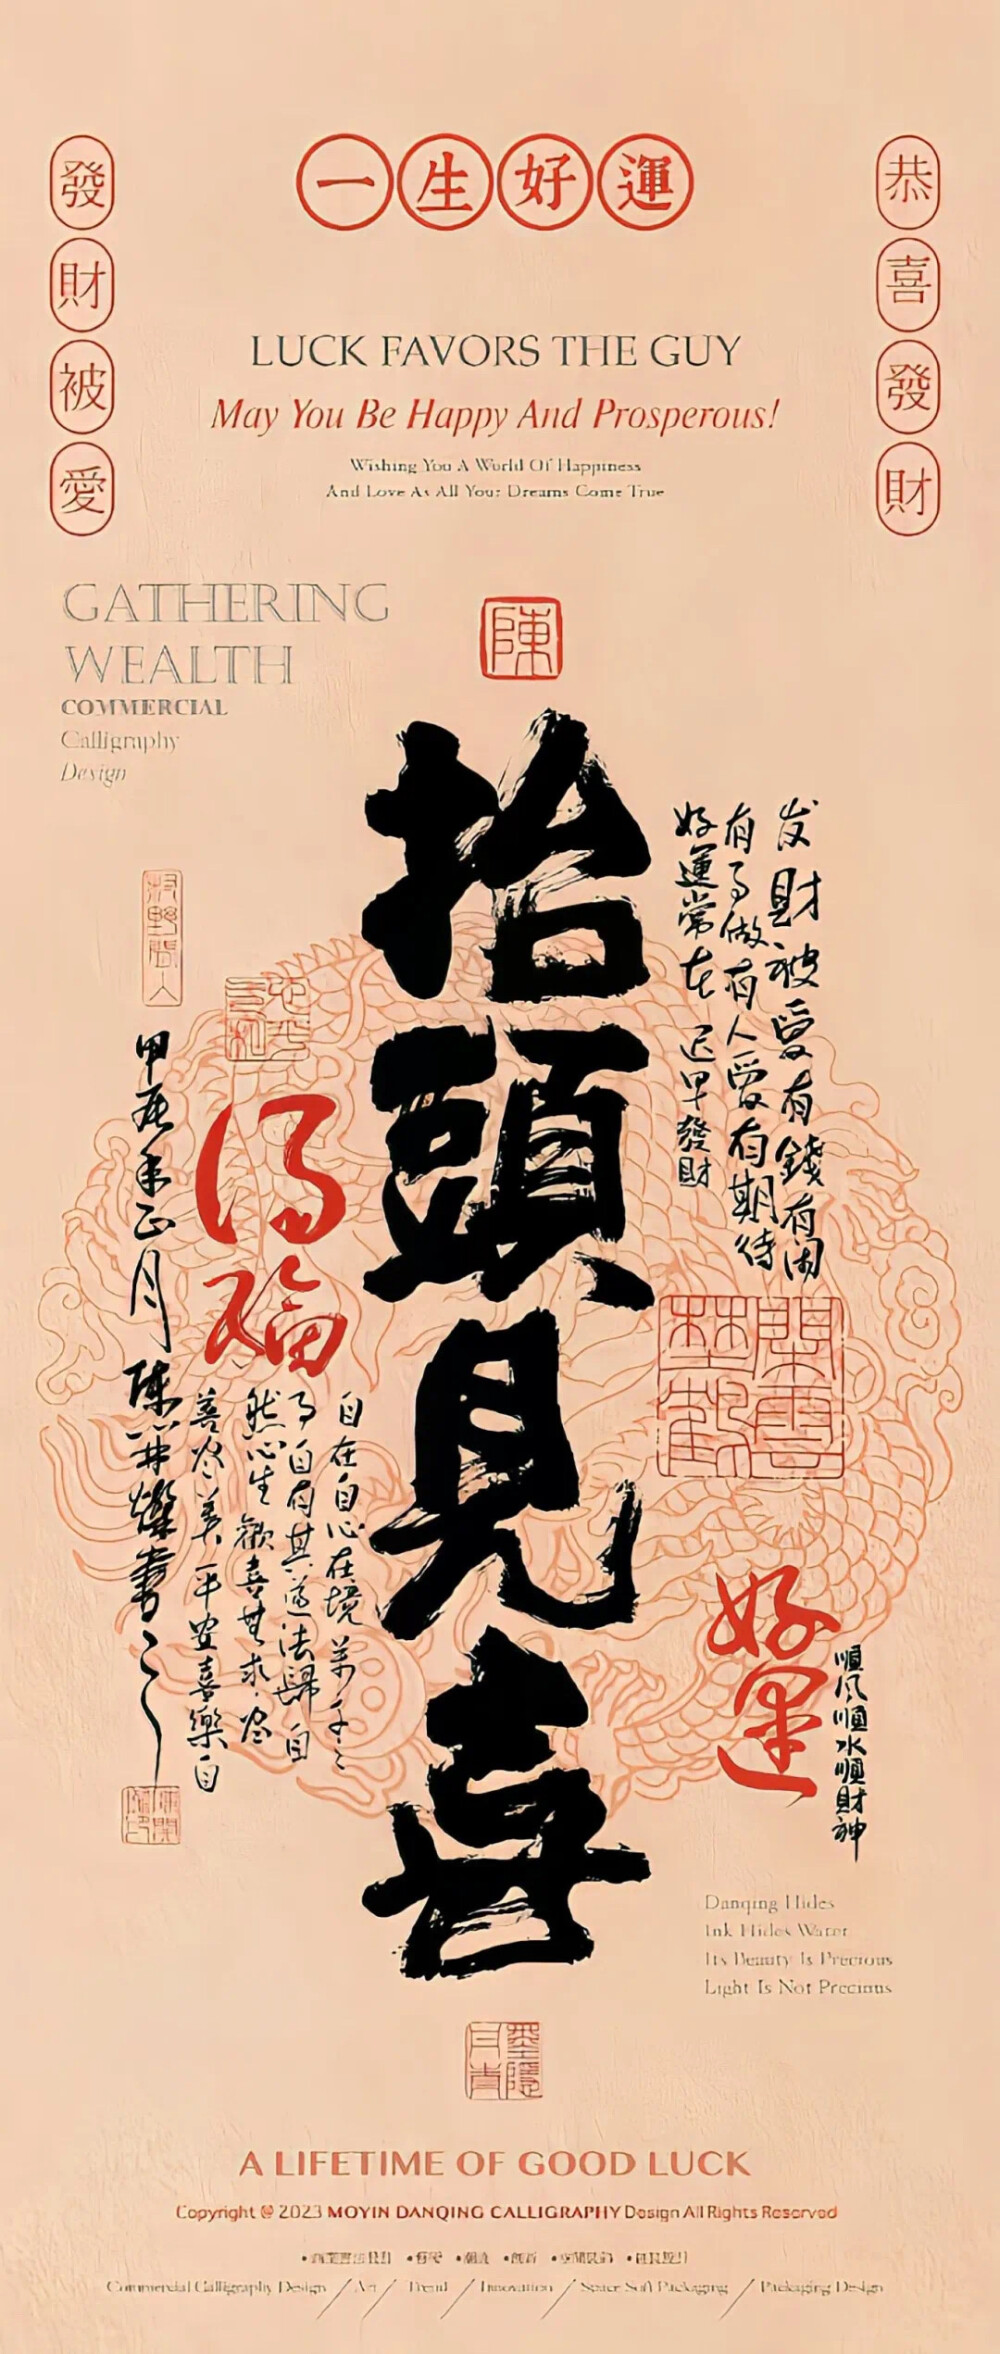 一生好運
發財被愛
恭喜發財
LUCK FAVORS THE GUY
May You Be Happy And Prosperous!
Wishing You A World Of Happiness
And Love As All Your Dreams Come True
GATHERING
WEALTH
COMMERCIAL
Calligraphy
Design
陳
抬頭見喜
发財被愛有錢有闲
有事做有人愛有期待
好運常在 迟早發財
得福
自在自心在境 萬千之
事自有其道法歸自
然心生歡喜無求尽
善尽美平安喜樂自
甲辰年正月陳井燦書
好運
順風順水順財神
Danqing Hides
Ink Hides Water
Its Beauty Is Precious
Light Is Not Precious
墨隱丹青
A LIFETIME OF GOOD LUCK
Copyright @ 2023 MOYIN DANQING CALLIGRAPHY Design All Rights Reserved
Commercial Calligraphy Design / Art / Trend / Innovation / Space Soft Packaging / Packaging Design